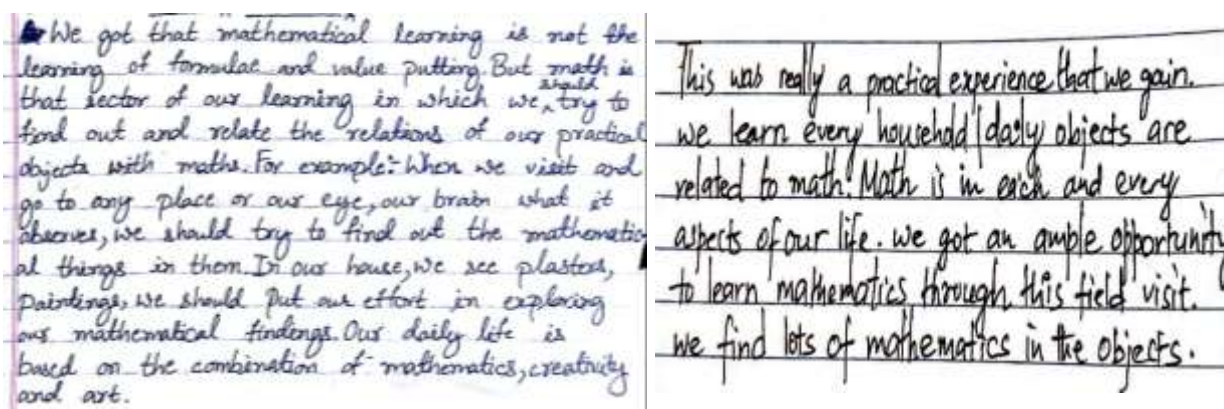 We got that mathematical learning is not the
learning of formulae and value putting. But math is
that sector of our learning in which we should try to
find out and relate the relations of our practical
objects with maths. For example:- When we visit and
go to any place or our eye, our brain what it
observes, we should try to find out the mathematic
al things in them. In our house, we see plasters,
paintings, we should put our effort in exploring
our mathematical findings. Our daily life is
based on the combination of mathematics, creativity
and art.
This was really a practical experience that we gain.
we learn every household/daily objects are
related to math. Math is in each and every
aspects of our life. we got an ample opportunity
to learn mathematics through this field visit.
we find lots of mathematics in the objects.